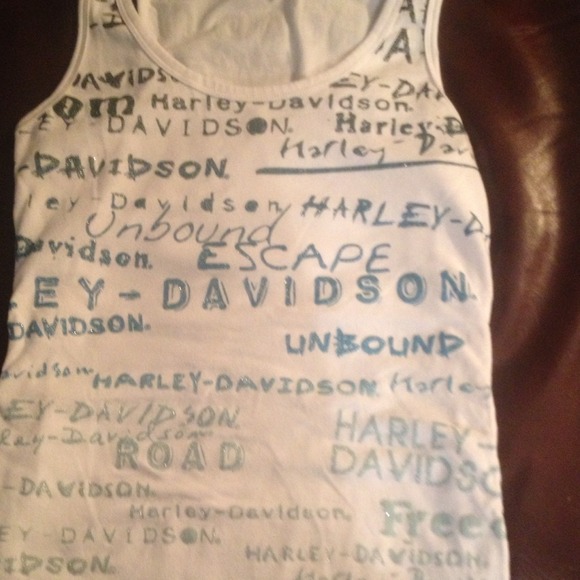 A
AVIDS
EY-DA
Harley-Davidson.
EY-DAVIDSON.
Harley-D
-DAVIDSON.
Harley-Dav
ley-Davidson
HARLEY-D
Unbound
Davidson.
ESCAPE
EY-DAVIDSON.
DAVIDSON.
UNBOUND
avidson
HARLEY-DAVIDSON
Harley
EY-DAVIDSON.
ley-Davidson
HARLEY-
DAVIDSO
ROAD
-DAVIDSON
Harley-Davidson.
Free
EY-DAVIDSON.
HARLEY-DAVIDSON.
IDSON.